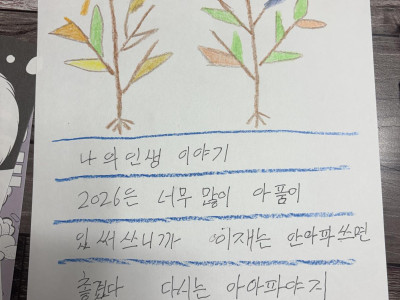 나의 인생 이야기
2026은 너무 많이 아품이
있써쓰니까 이재는 안아파쓰면
좋겠다 다시는 아아파야지